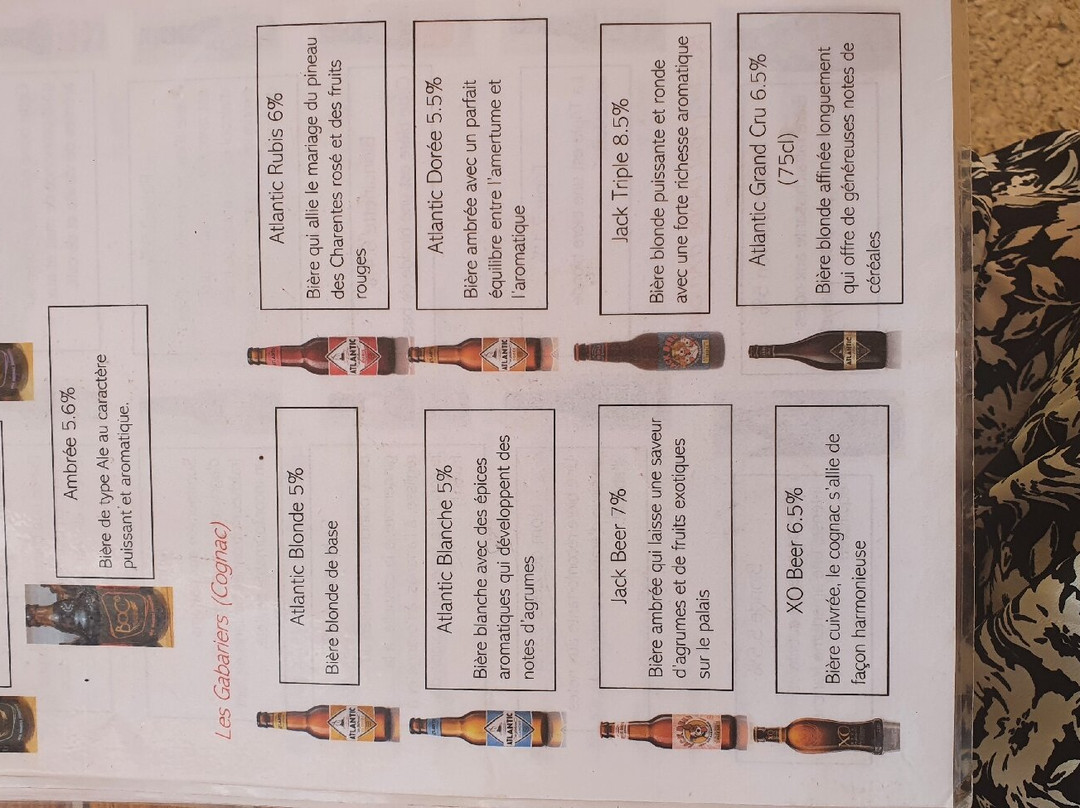 Ambrée 5.6%
Bière de type Ale au caractère
puissant et aromatique.
BOC
Les Gabariers (Cognac)
Atlantic Blonde 5%
Bière blonde de base
ATLANTIC
Atlantic Rubis 6%
Bière qui allie le mariage du pineau
des Charentes rosé et des fruits
rouges
ATLANTIC
Atlantic Blanche 5%
Bière blanche avec des épices
aromatiques qui développent des
notes d'agrumes
ATLANTIC
Atlantic Dorée 5.5%
Bière ambrée avec un parfait
équilibre entre l'amertume et
l'aromatique
ATLANTIC
Jack Beer 7%
Bière ambrée qui laisse une saveur
d'agrumes et de fruits exotiques
sur le palais
Jack Triple 8.5%
Bière blonde puissante et ronde
avec une forte richesse aromatique
XO Beer 6.5%
Bière cuivrée, le cognac s'allie de
façon harmonieuse
XO
Atlantic Grand Cru 6.5%
(75cl)
Bière blonde affinée longuement
qui offre de généreuses notes de
céréales
ATLANTIC